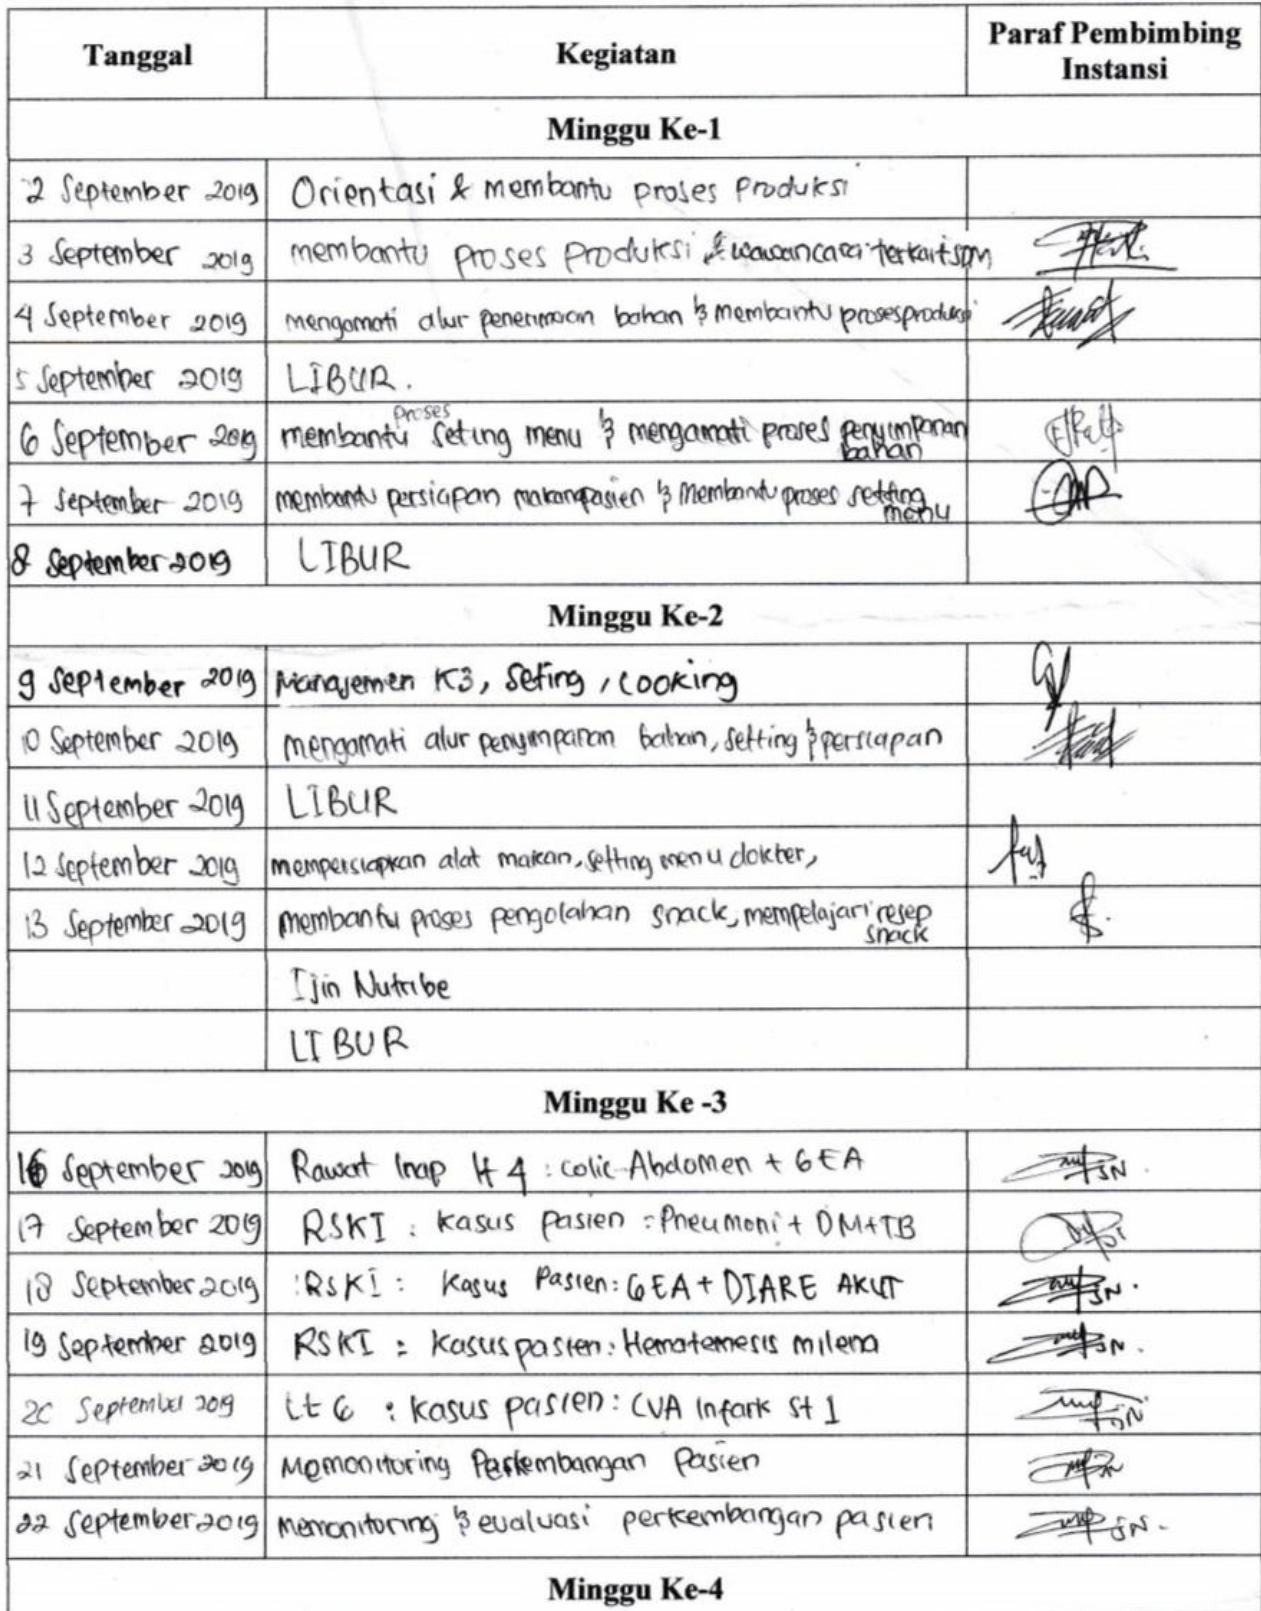 Tanggal Kegiatan Paraf Pembimbing Instansi
Minggu Ke-1
2 September 2019 Orientasi & membantu proses produksi
3 September 2019 membantu proses produksi & wawancara terkait SDM
4 September 2019 mengamati alur penerimaan bahan & membantu proses produksi
5 September 2019 LIBUR.
6 September 2019 membantu proses seting menu & mengamati proses penyimpanan bahan
7 September 2019 membantu persiapan makan pasien & Membantu proses setting menu
8 September 2019 LIBUR
Minggu Ke-2
9 September 2019 Manajemen K3, Seting, Cooking
10 September 2019 mengamati alur penyimpanan bahan, setting & persiapan
11 September 2019 LIBUR
12 September 2019 mempersiapkan alat makan, setting menu dokter,
13 September 2019 membantu proses pengolahan snack, mempelajari resep snack
Ijin Nutribe
LIBUR
Minggu Ke -3
16 September 2019 Rawat Inap lt 4 : colic Abdomen + GEA
17 September 2019 RSKI : kasus pasien : Pneumoni + DM+TB
18 September 2019 RSKI : Kasus Pasien : GEA + DIARE AKUT
19 September 2019 RSKI : Kasus pasien : Hematemesis milena
20 September 2019 Lt 6 : Kasus pasien : CVA Infark St 1
21 September 2019 Memonitoring Perkembangan Pasien
22 September 2019 Memonitoring & evaluasi perkembangan pasien
Minggu Ke-4